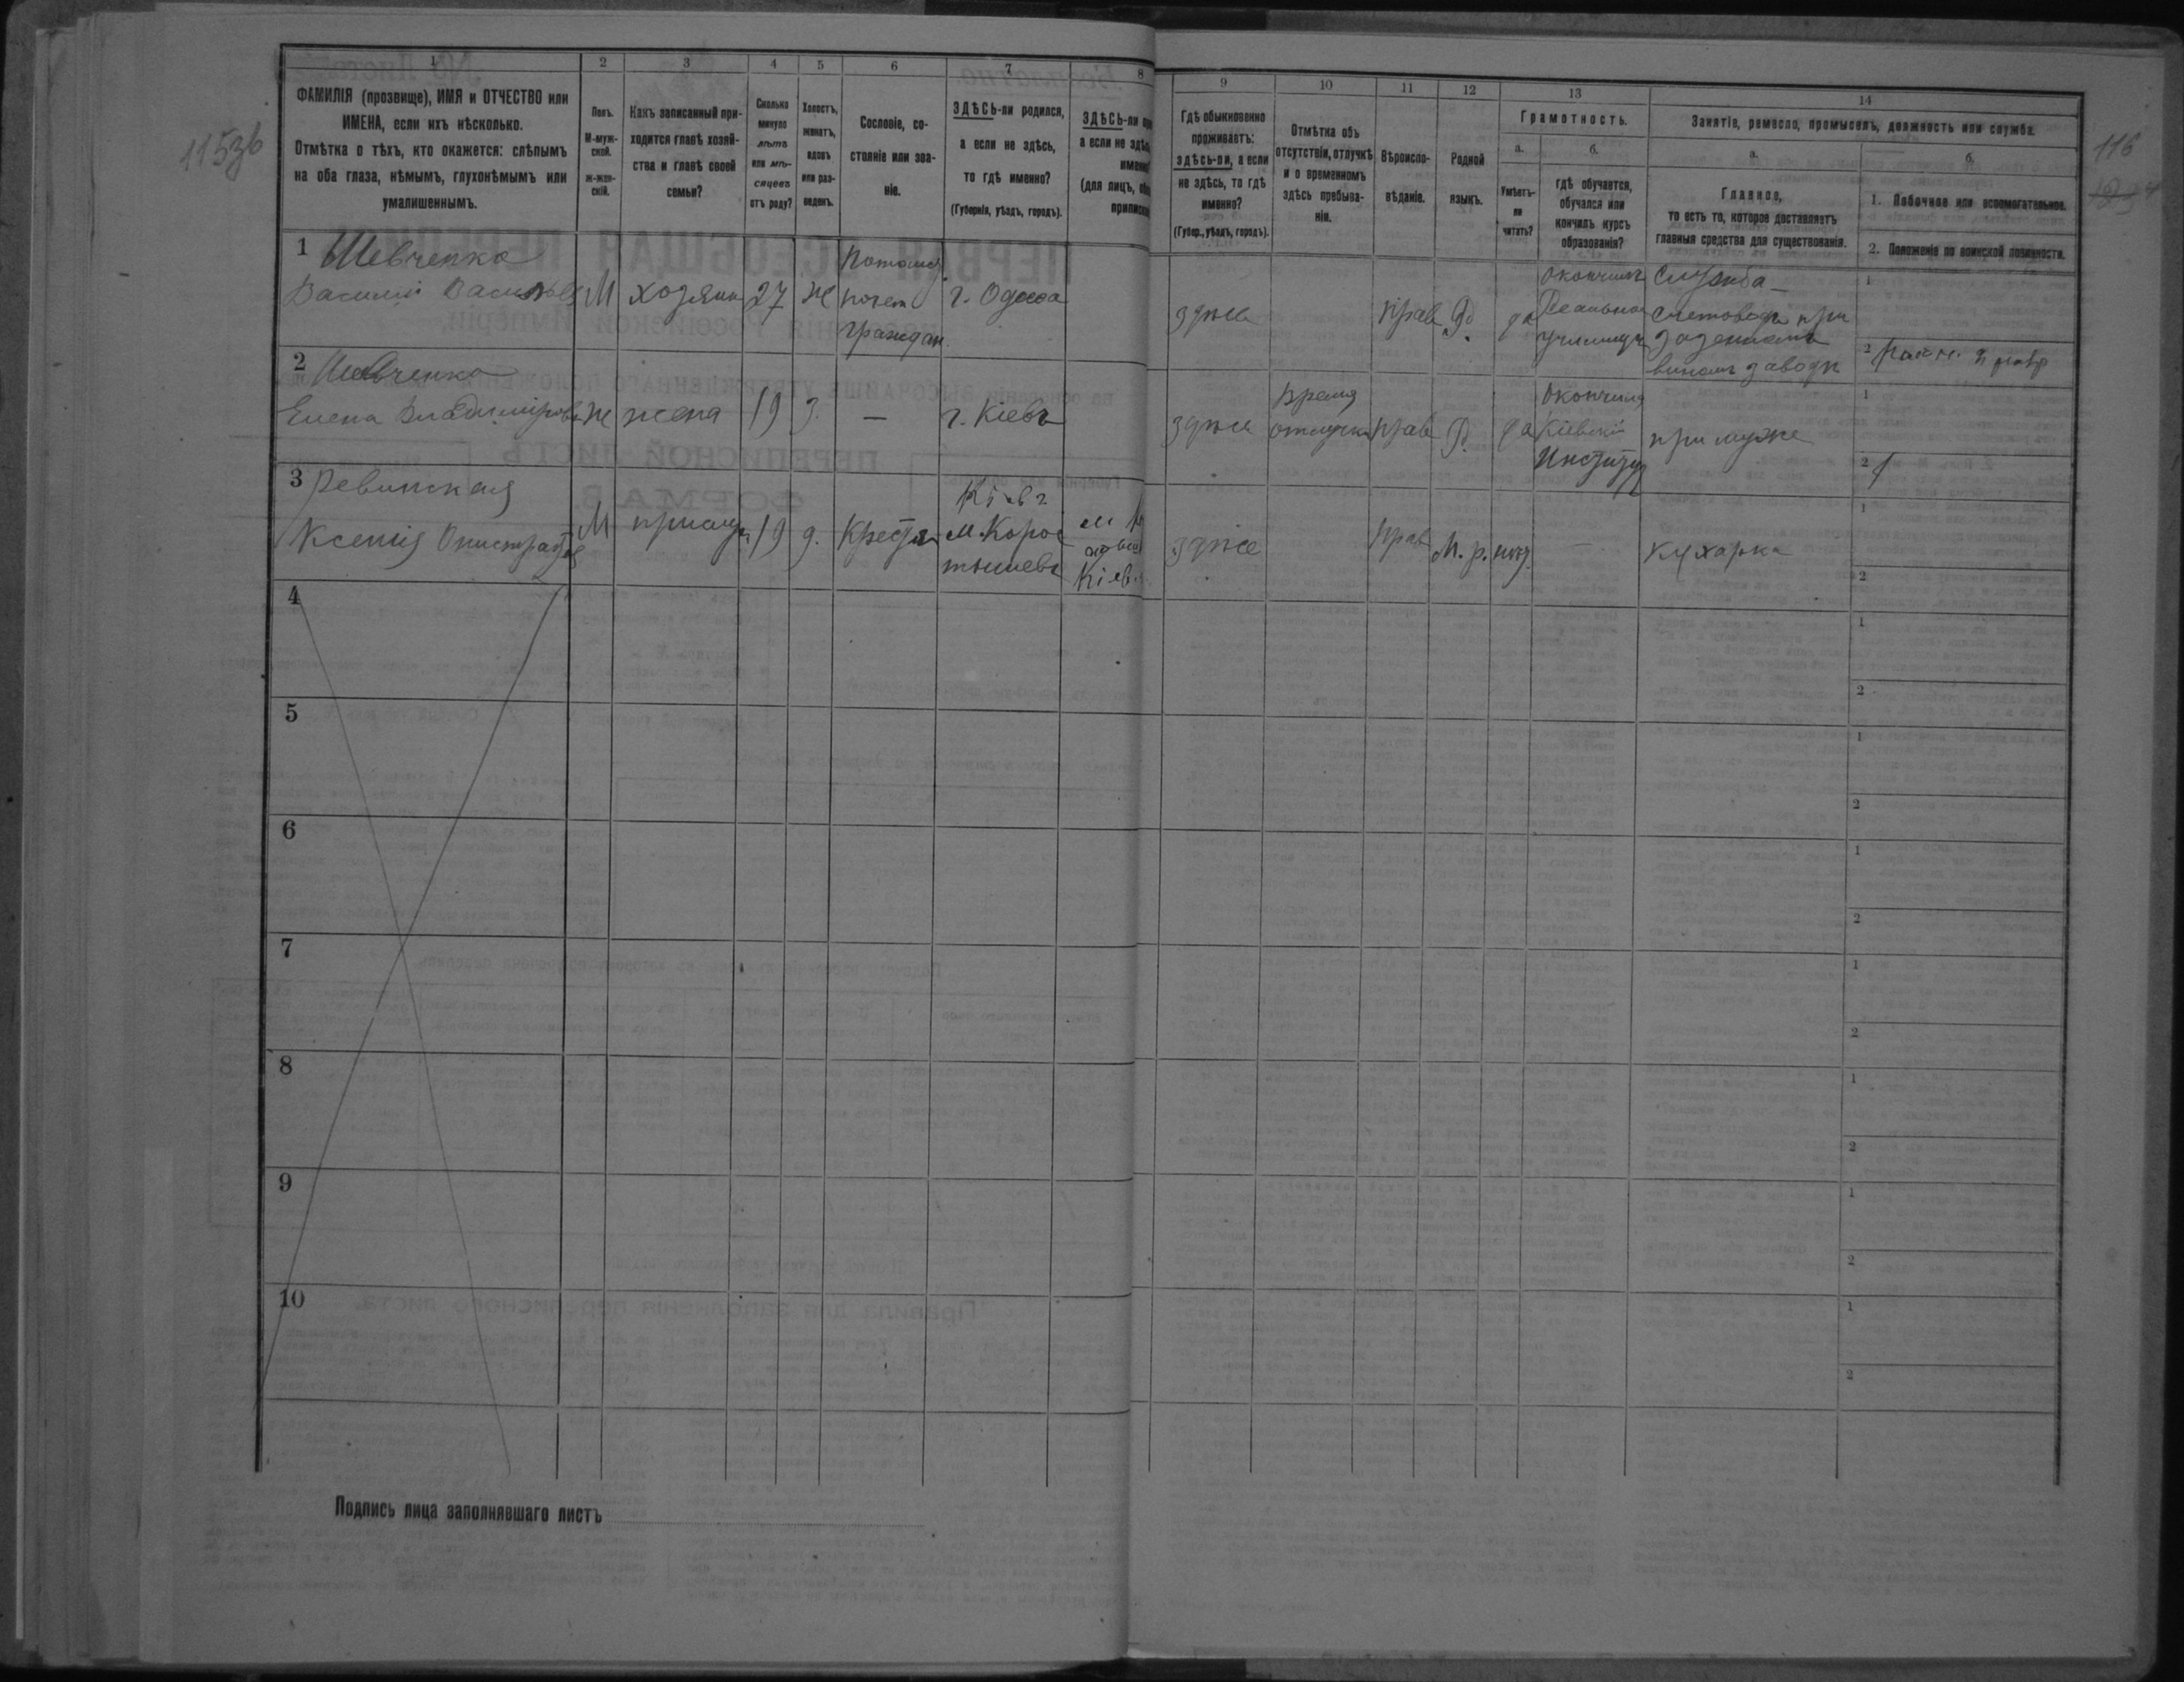 115зв
116
1
2
3
4
5
6
7
8
9
10
11
12
13
14
ФАМИЛІЯ (прозвище), ИМЯ и ОТЧЕСТВО или
ИМЕНА, если ихъ нѣсколько.
Отмѣтка о тѣхъ, кто окажется: слѣпымъ
на оба глаза, нѣмымъ, глухонѣмымъ или
умалишеннымъ.
Полъ.
М-муж-
ской.
ж-жен-
скій.
Какъ записанный при-
ходится главѣ хозяй-
ства и главѣ своей
семьи?
Сколько
минуло
лѣтъ
или мѣ-
сяцевъ
отъ роду?
Холостъ,
женатъ,
вдовъ
или раз-
веденъ.
Сословіе, со-
стояніе или зва-
ніе.
ЗДѢСЬ-ли родился,
а если не здѣсь,
то гдѣ именно?
(Губернія, уѣздъ, городъ).
ЗДѢСЬ-ли
а если не здѣ
именно
(для лицъ,
приписки
Гдѣ обыкновенно
проживаетъ:
здѣсь-ли, а если
не здѣсь, то гдѣ
именно?
(Губер., уѣздъ, городъ).
Отмѣтка объ
отсутствіи, отлучкѣ
и о временномъ
здѣсь пребыва-
ніи.
Вѣроиспо-
вѣданіе.
Родной
языкъ.
Грамотность.
а.
б.
Умѣетъ-
ли
читать?
гдѣ обучается,
обучался или
кончилъ курсъ
образованія?
Занятіе, ремесло, промыселъ, должность или служба.
а.
б.
Главное,
то есть то, которое доставляетъ
главныя средства для существованія.
1. Побочное или вспомогательное.
2. Положеніе по воинской повинности.
1 Шевченко
Василій Васильев
М
хозяин
27
ж
Потомст.
почет
Граждан
г. Одесса
здѣсь
Прав
Р.
да
Окончил
Реальное
училище
Служба –
счетоводъ при
казенномъ
винном заводѣ
1
2
2 Шевченко
Елена Владиміровн
ж
жена
19
з.
—
г. Кіевъ
здѣсь
время
отлучка
прав
Р.
да
Окончила
Кіевскій
Институт
при мужѣ
1
2
3 Ревинская
Ксенія Онистрат
М
прислуг
19
д.
Крестьян
Кіевъ
м. Корос
тышевъ
Кіев.
здѣсь
Прав
М. р.
нѣт
—
Кухарка
1
2
4
1
2
5
1
2
6
1
2
7
1
2
8
1
2
9
1
2
10
1
2
Подпись лица заполнявшаго листъ